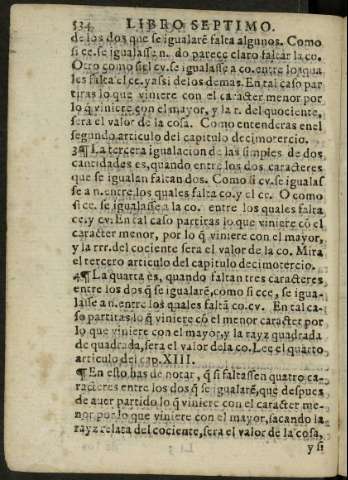 534 LIBRO SEPTIMO.
de los dos que se igualarē falta algunos. Como
si ce. se igualasse a n. do parece claro faltar la co.
Otro como si el cv. se igualasse a co. entre los qua
les falta el ce. y assi de los demas. En tal caso par
tiras lo que viniere con el caracter menor por
lo q̄ viniere con el mayor, y la r. del quociente,
sera el valor de la cosa. Como entenderas en el
segundo articulo del capitulo decimotercio.
3¶ La tercera igualacion de las simples de dos
cantidades es, quando entre los dos caracteres
que se igualan faltan dos. Como si cv. se igualas
se a n. entre los quales falta co. y el ce. O como
si cce. se igualasse a la co. entre los quales falta
ce. y cv. En tal caso partiras lo que viniere cō el
caracter menor, por lo q̄ viniere con el mayor,
y la rrr. del cociente sera el valor de la co. Mira
el tercero articulo del capitulo decimotercio.
4¶ La quarta es, quando faltan tres caracteres
entre los dos q̄ se igualarē, como si cce, se igua-
lasse a n. entre los quales faltā co. cv. En tal ca-
so partiras lo q̄ viniere cō el menor caracter por
lo que viniere con el mayor, y la rayz quadrada
de quadrada, sera el valor de la co. Lee el quarto
articulo del cap. XIII.
¶ En esto has de notar, q̄ si faltassen quatro ca-
racteres entre los dos q̄ se igualarē, que despues
de auer partido lo q̄ viniere con el caracter me-
nor por lo que viniere con el mayor, sacando la
rayz relata del cociente, sera el valor de la cosa,
y si